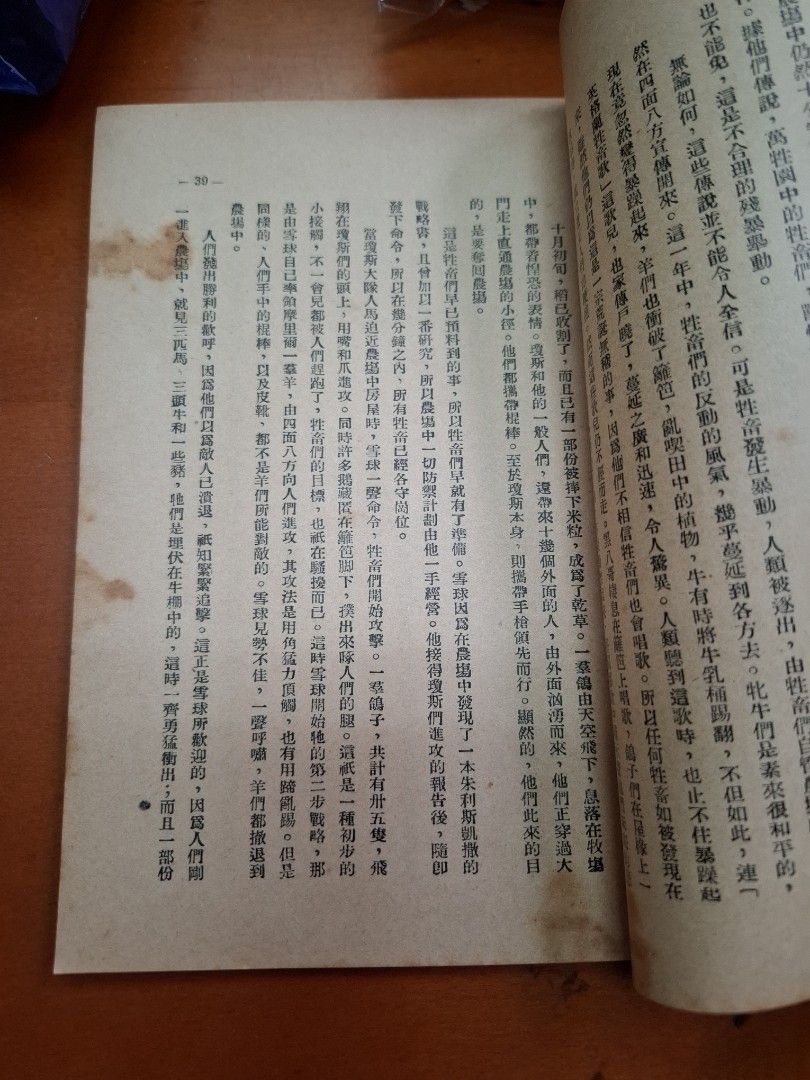 農場中仍然十分
據他們傳說,萬牲園中的牲畜們,
也不能免,這是不合理的殘暴舉動。
無論如何,這些傳說並不能令人全信。可是牲畜發生暴動,人類被逐出,由牲畜們自管農場
然在四面八方宣傳開來。這一年中,牲畜們的反動的風氣,幾乎蔓延到各方去。牝牛們是素來很和平的,
現在竟忽然變得暴躁起來,羊們也衝破了籬笆,亂喫田中的植物,牛有時將牛乳桶踢翻,不但如此,連「
英格蘭牲畜歌」這歌兒,也家傳戶曉了,蔓延之廣和迅速,令人驚異。人類聽到這歌時,也止不住暴躁起
來,雖然他們仍以爲這是一宗荒謬無稽的事,因爲他們不相信牲畜們也會唱歌。所以任何牲畜如被發現在
息在籬笆上唱歌,鴿子們在屋緣上一
十月初旬,稻已收割了,而且已有一部份被摔下米粒,成爲了乾草。一羣鴿由天空飛下,息落在牧場
中,都帶着惶恐的表情。瓊斯和他的一般人們,還帶來十幾個外面的人,由外面洶湧而來,他們正穿過大
門走上直通農場的小徑。他們都攜帶棍棒。至於瓊斯本身,則攜帶手槍領先而行。顯然的,他們此來的目
的,是要奪囘農場。
這是牲畜們早已預料到的事,所以牲畜們早就有了準備。雪球因爲在農場中發現了一本朱利斯凱撒的
戰略書,且曾加以一番研究,所以農場中一切防禦計劃由他一手經營。他接得瓊斯們進攻的報告後,隨卽
發下命令,所以在幾分鐘之內,所有牲畜已經各守崗位。
當瓊斯大隊人馬迫近農場中房屋時,雪球一聲命令,牲畜們開始攻擊。一羣鴿子,共計有卅五隻,飛
翔在瓊斯們的頭上,用嘴和爪進攻。同時許多鵝藏匿在籬笆脚下,撲出來啄人們的腿。這祇是一種初步的
小接觸,不一會兒都被人們趕跑了,牲畜們的目標,也祇在騷擾而已。這時雪球開始牠的第二步戰略,那
是由雪球自己率領摩里爾一羣羊,由四面八方向人們進攻,其攻法是用角猛力頂觸,也有用蹄亂踢。但是
同樣的、人們手中的棍棒,以及皮靴、都不是羊們所能對敵的。雪球見勢不佳,一聲呼嘯,羊們都撤退到
農場中。
人們發出勝利的歡呼,因爲他們以爲敵人已潰退,祇知緊緊追擊。這正是雪球所歡迎的,因爲人們剛
一進入農場中、就見三匹馬、三頭牛和一些豬,牠們是埋伏在牛棚中的,這時一齊勇猛衝出;而且一部份
— 39 —